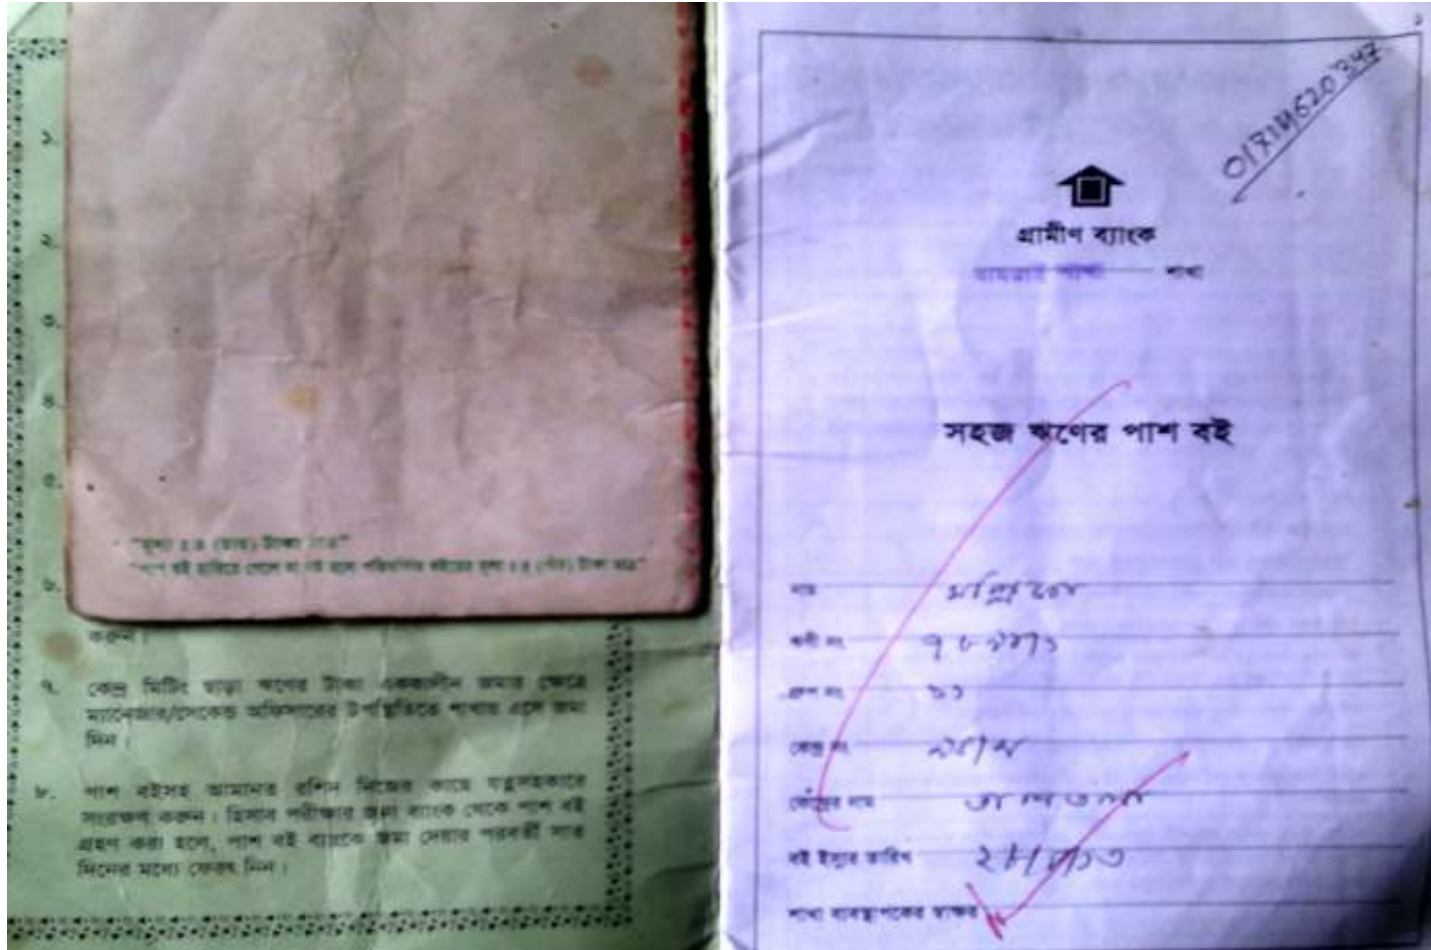 ১.
২.
৩.
৪.
৫.
৬.
"মূল্য ঃ ৪ (চার) টাকা মাত্র"
"পাশ বই হারিয়ে গেলে বা নষ্ট হলে পরিবর্তিত বইয়ের মূল্য ঃ ৫ (পাঁচ) টাকা মাত্র"
করুন।
৭. কেন্দ্র মিটিং ছাড়া ঋণের টাকা এককালীন জমার ক্ষেত্রে
ম্যানেজার/সেকেন্ড অফিসারের উপস্থিতিতে শাখায় এসে জমা
দিন।
৮. পাশ বইসহ আমানত রশিদ নিজের কাছে যত্নসহকারে
সংরক্ষণ করুন। হিসাব পরীক্ষার জন্য ব্যাংক থেকে পাশ বই
গ্রহণ করা হলে, পাশ বই ব্যাংকে জমা দেয়ার পরবর্তী সাত
দিনের মধ্যে ফেরৎ নিন।
১
গ্রামীণ ব্যাংক
শাখা শাখা
সহজ ঋণের পাশ বই
নাম
ঋণী নং
গ্রুপ নং ১১
কেন্দ্র নং
কেন্দ্রের নাম
বই ইস্যুর তারিখ
শাখা ব্যবস্থাপকের স্বাক্ষর